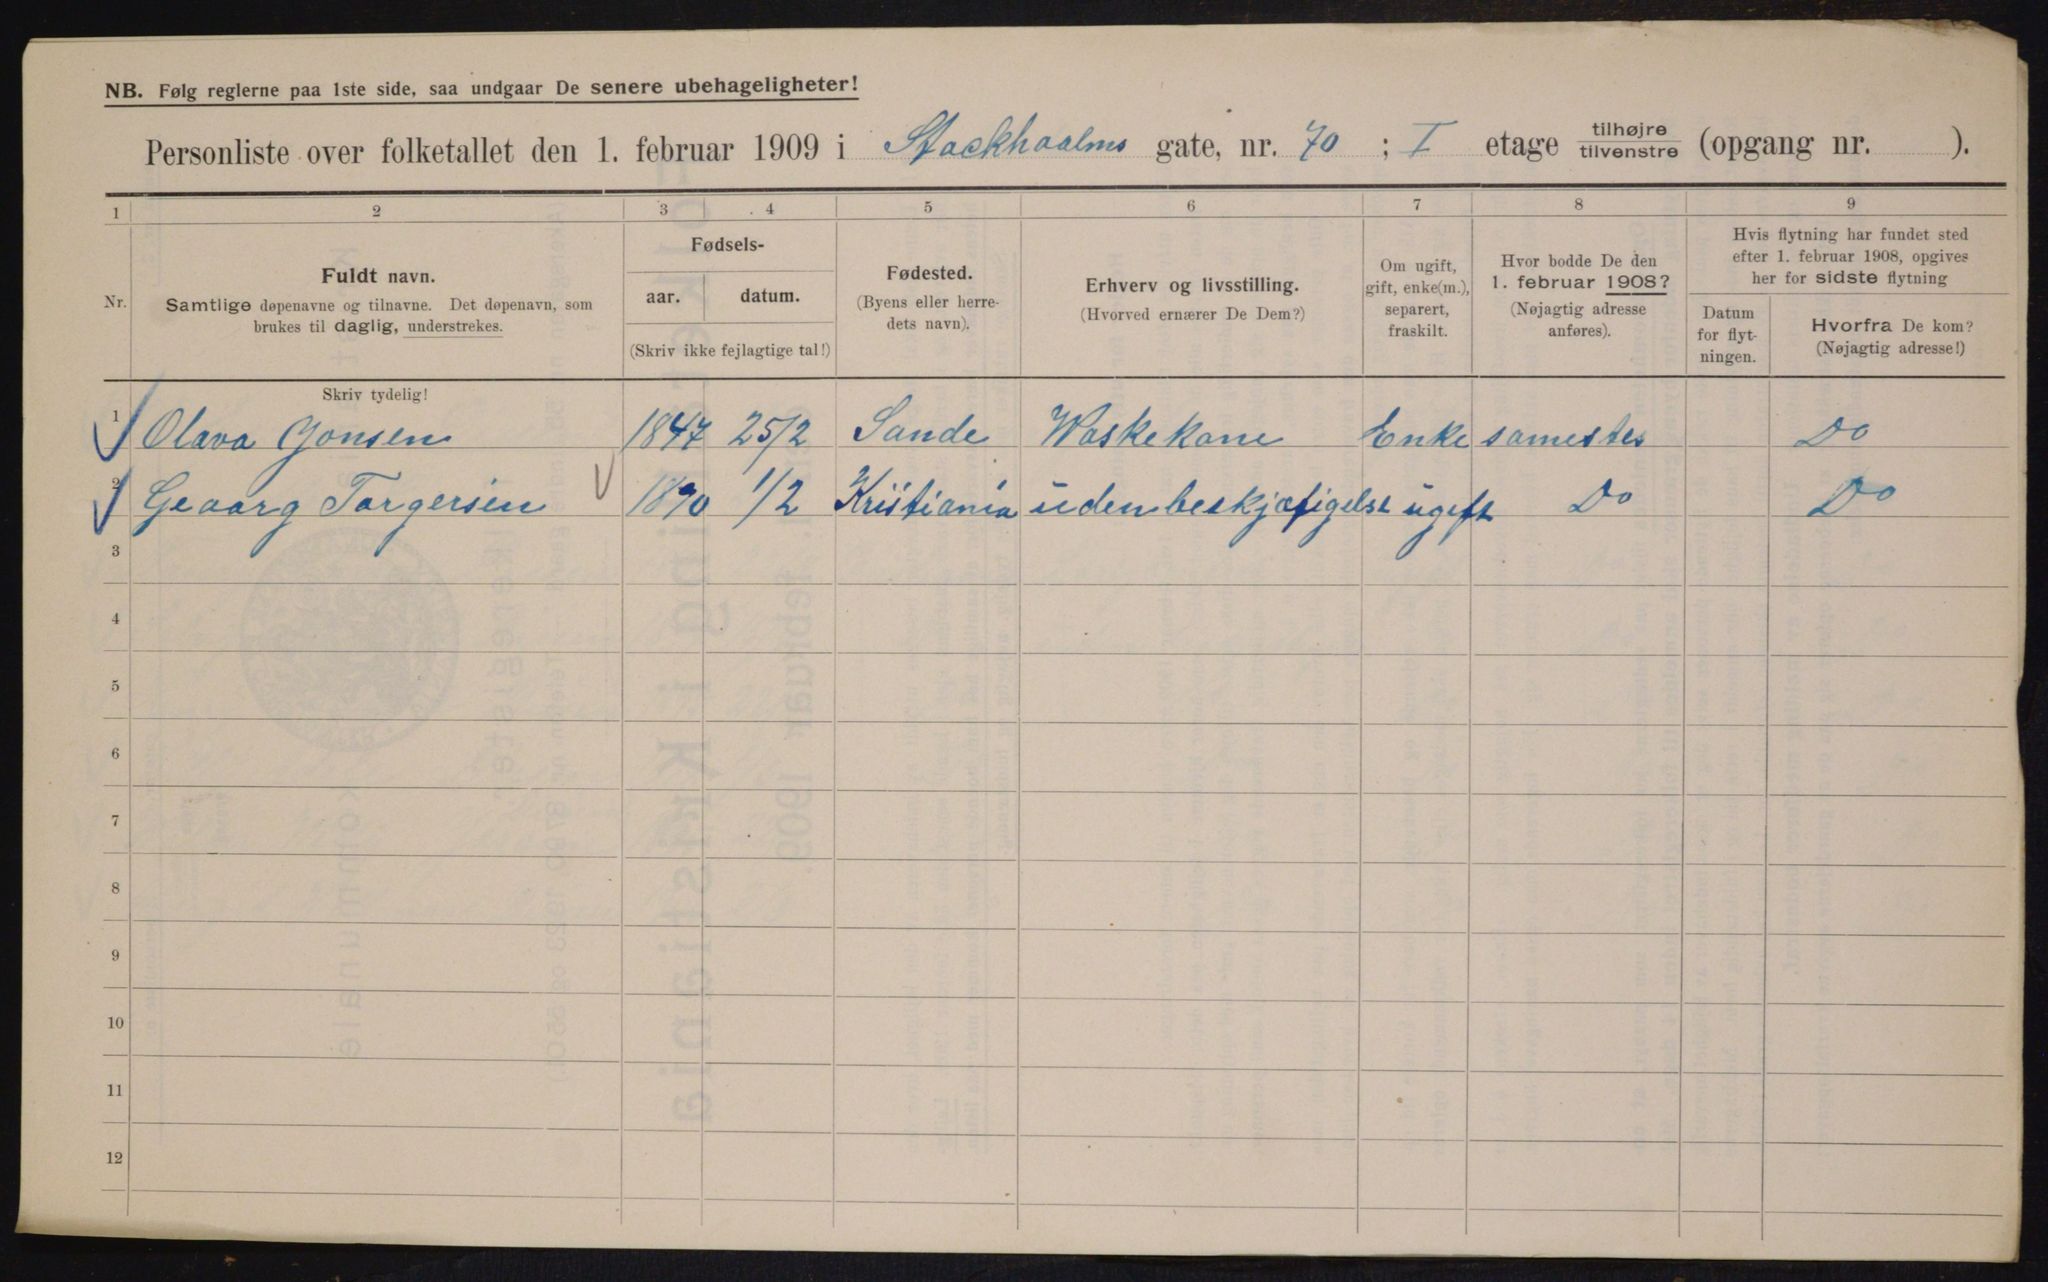 NB. Følg reglerne paa 1ste side, saa undgaar De senere ubehageligheter!
Personliste over folketallet den 1. februar 1909 i Stockhoolms gate, nr. 70 ; I etage tilhøjre tilvenstre (opgang nr. ).
1 2 3 4 5 6 7 8 9
Nr.
Fuldt navn.
Samtlige døpenavne og tilnavne. Det døpenavn, som
brukes til daglig, understrekes.
Fødsels-
aar. datum.
(Skriv ikke fejlagtige tal!)
Fødested.
(Byens eller herre-
dets navn).
Erhverv og livsstilling.
(Hvorved ernærer De Dem?)
Om ugift,
gift, enke(m.),
separert,
fraskilt.
Hvor bodde De den
1. februar 1908?
(Nøjagtig adresse
anføres).
Hvis flytning har fundet sted
efter 1. februar 1908, opgives
her for sidste flytning
Datum
for flyt-
ningen.
Hvorfra De kom?
(Nøjagtig adresse!)
Skriv tydelig!
1 Olava Jonsen 1847 25/2 Sande Waskekone Enke samestes Do
2 Geoorg Torgersen 1890 1/2 Kristiania uden beskjæfigelse ugift Do Do
3
4
5
6
7
8
9
10
11
12